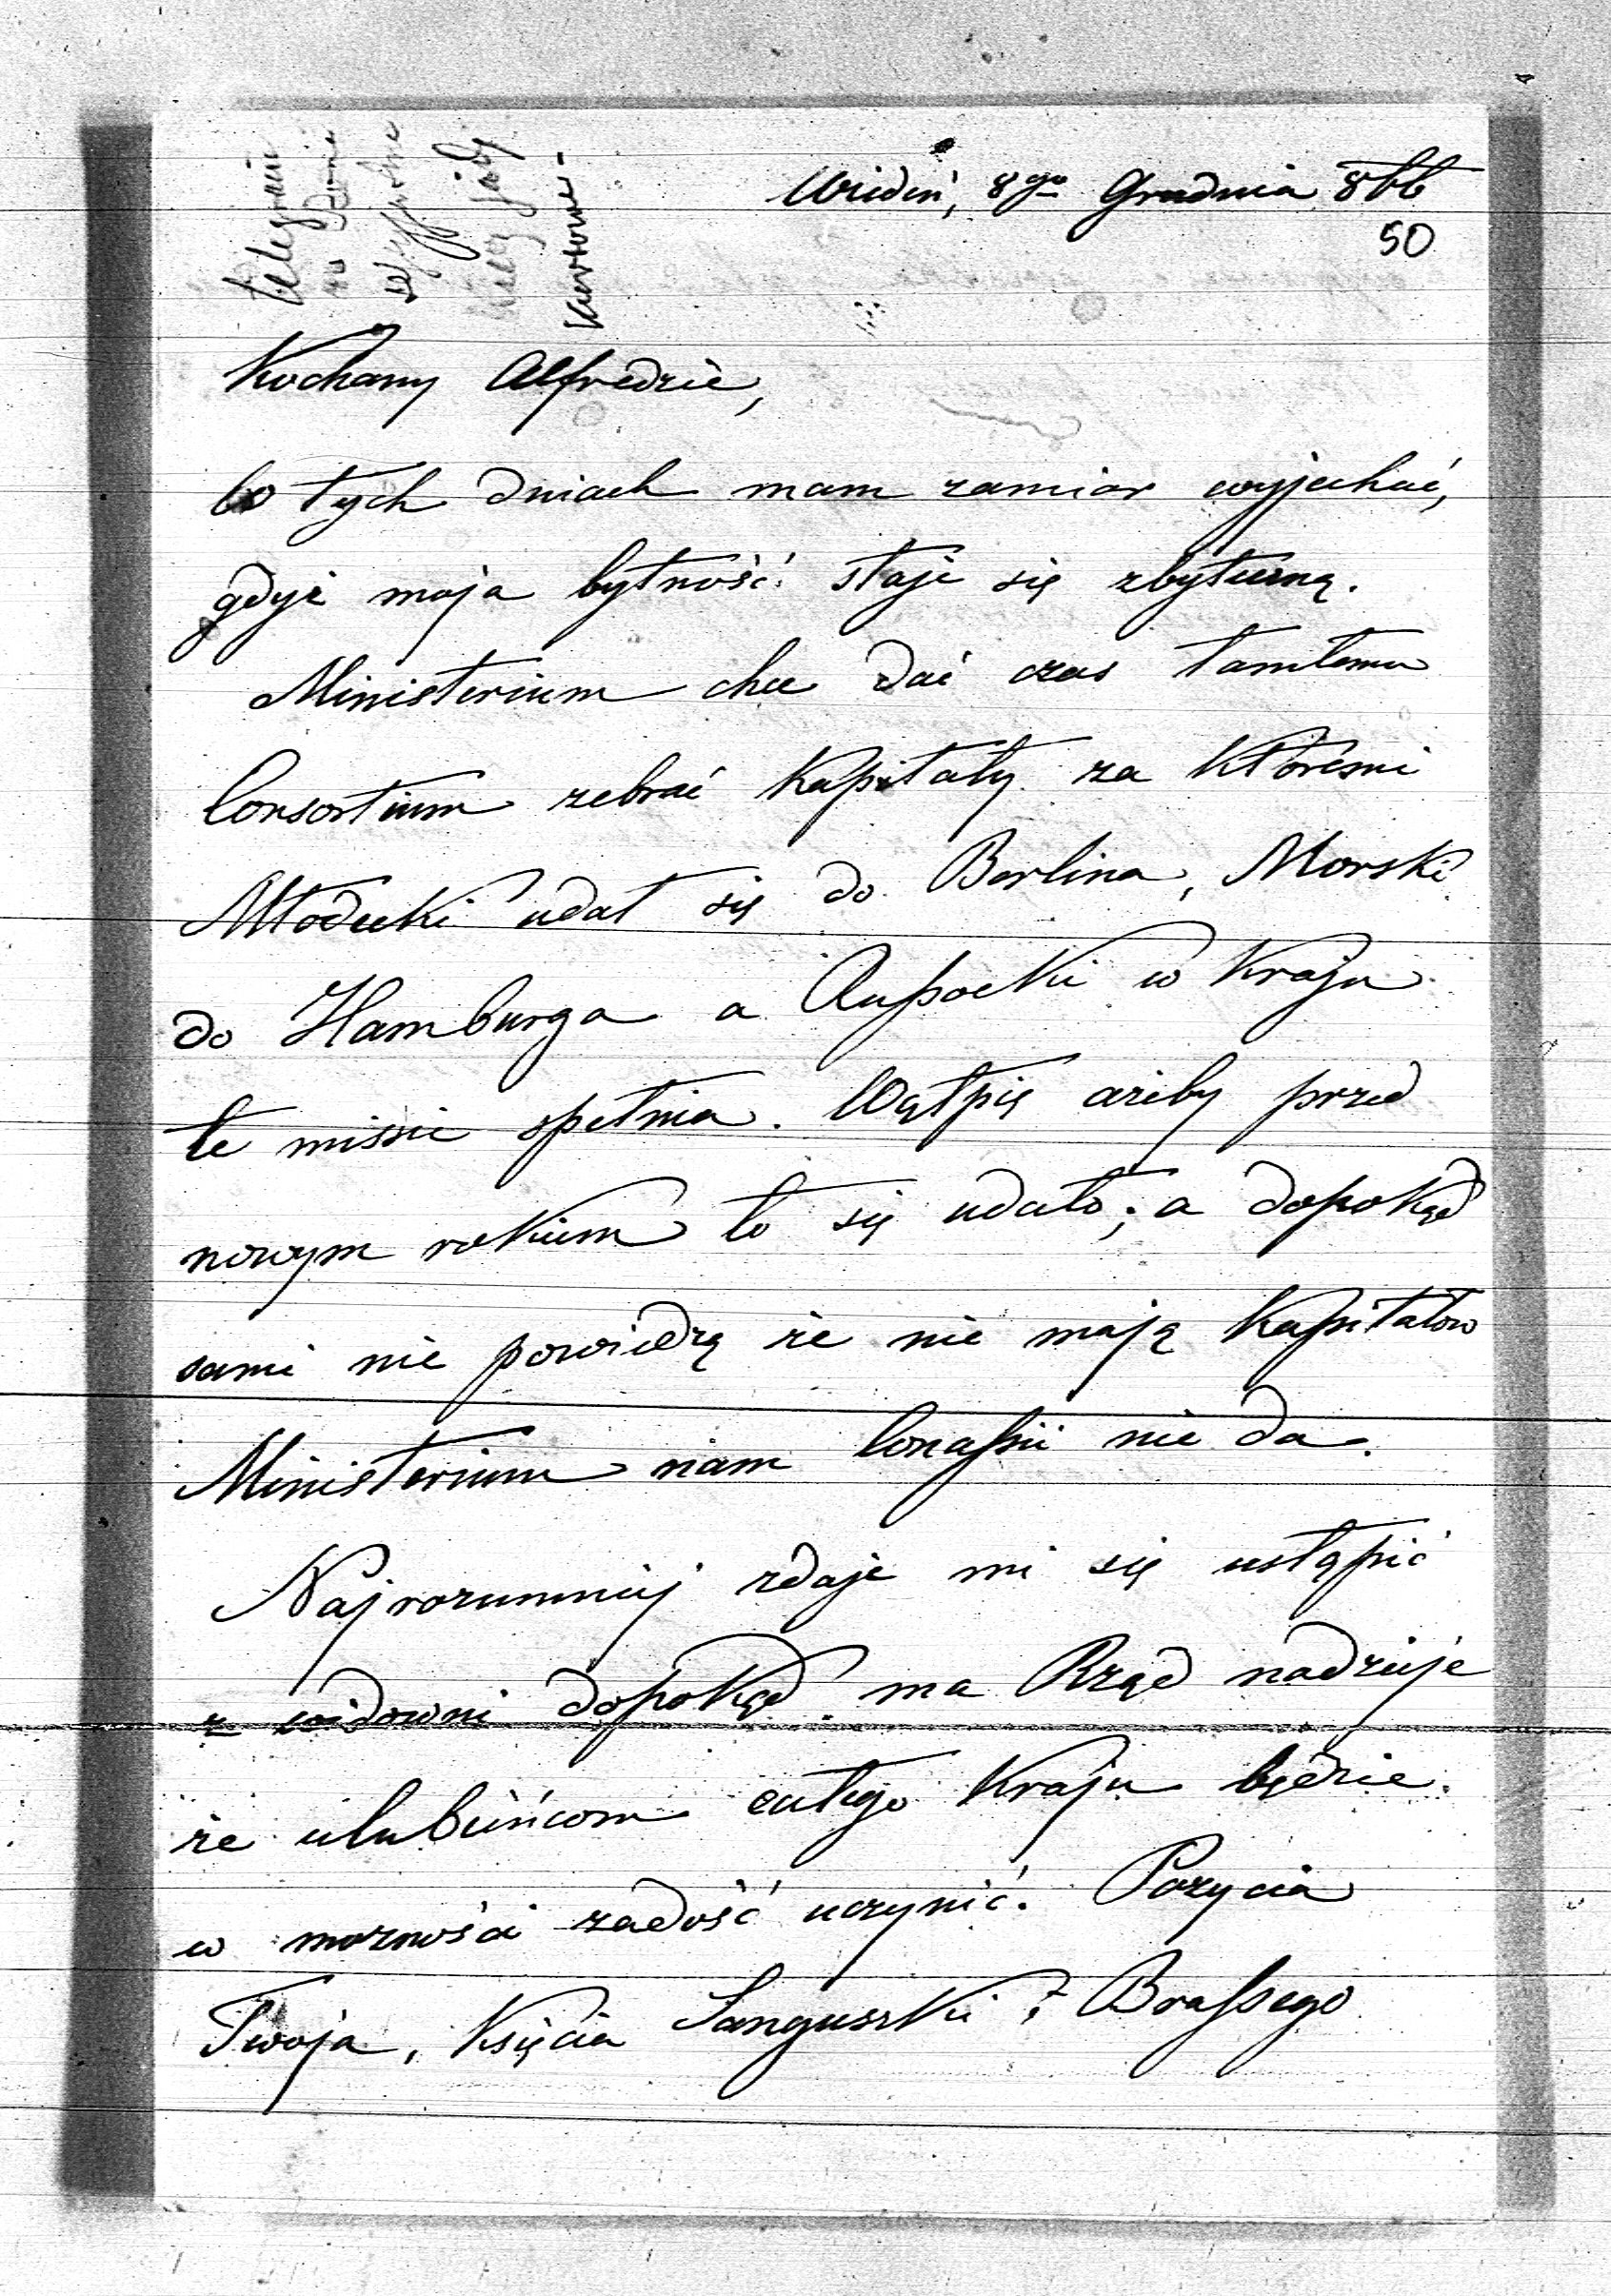 Wiedeń, 8go Grudnia 866
50
telegram
Kochany Alfredzie,
W tych dniach mam zamiar wyjechać,
gdyż moja bytność staje się zbyteczną.
Ministerium chce dać czas tamtemu
Consortium zebrać Kapitały za któremi
Młodecki udał się do Berlina, Morski
do Hamburga a Russocki w Kraju
te missie spełnia. Wątpię ażeby przed
nowym rokiem to się udało; a dopokąd
sami nie powiedzą że nie mają Kapitałów
Ministerium nam Concessii nie da.
Najrozumniej zdaje mi się ustąpić
z widowni dopokąd ma Rząd nadzieje
że ulubieńcom całego Kraju będzie
w możności zadość uczynić. Pozycia
Twoja, Księcia Sanguszki i Brassego